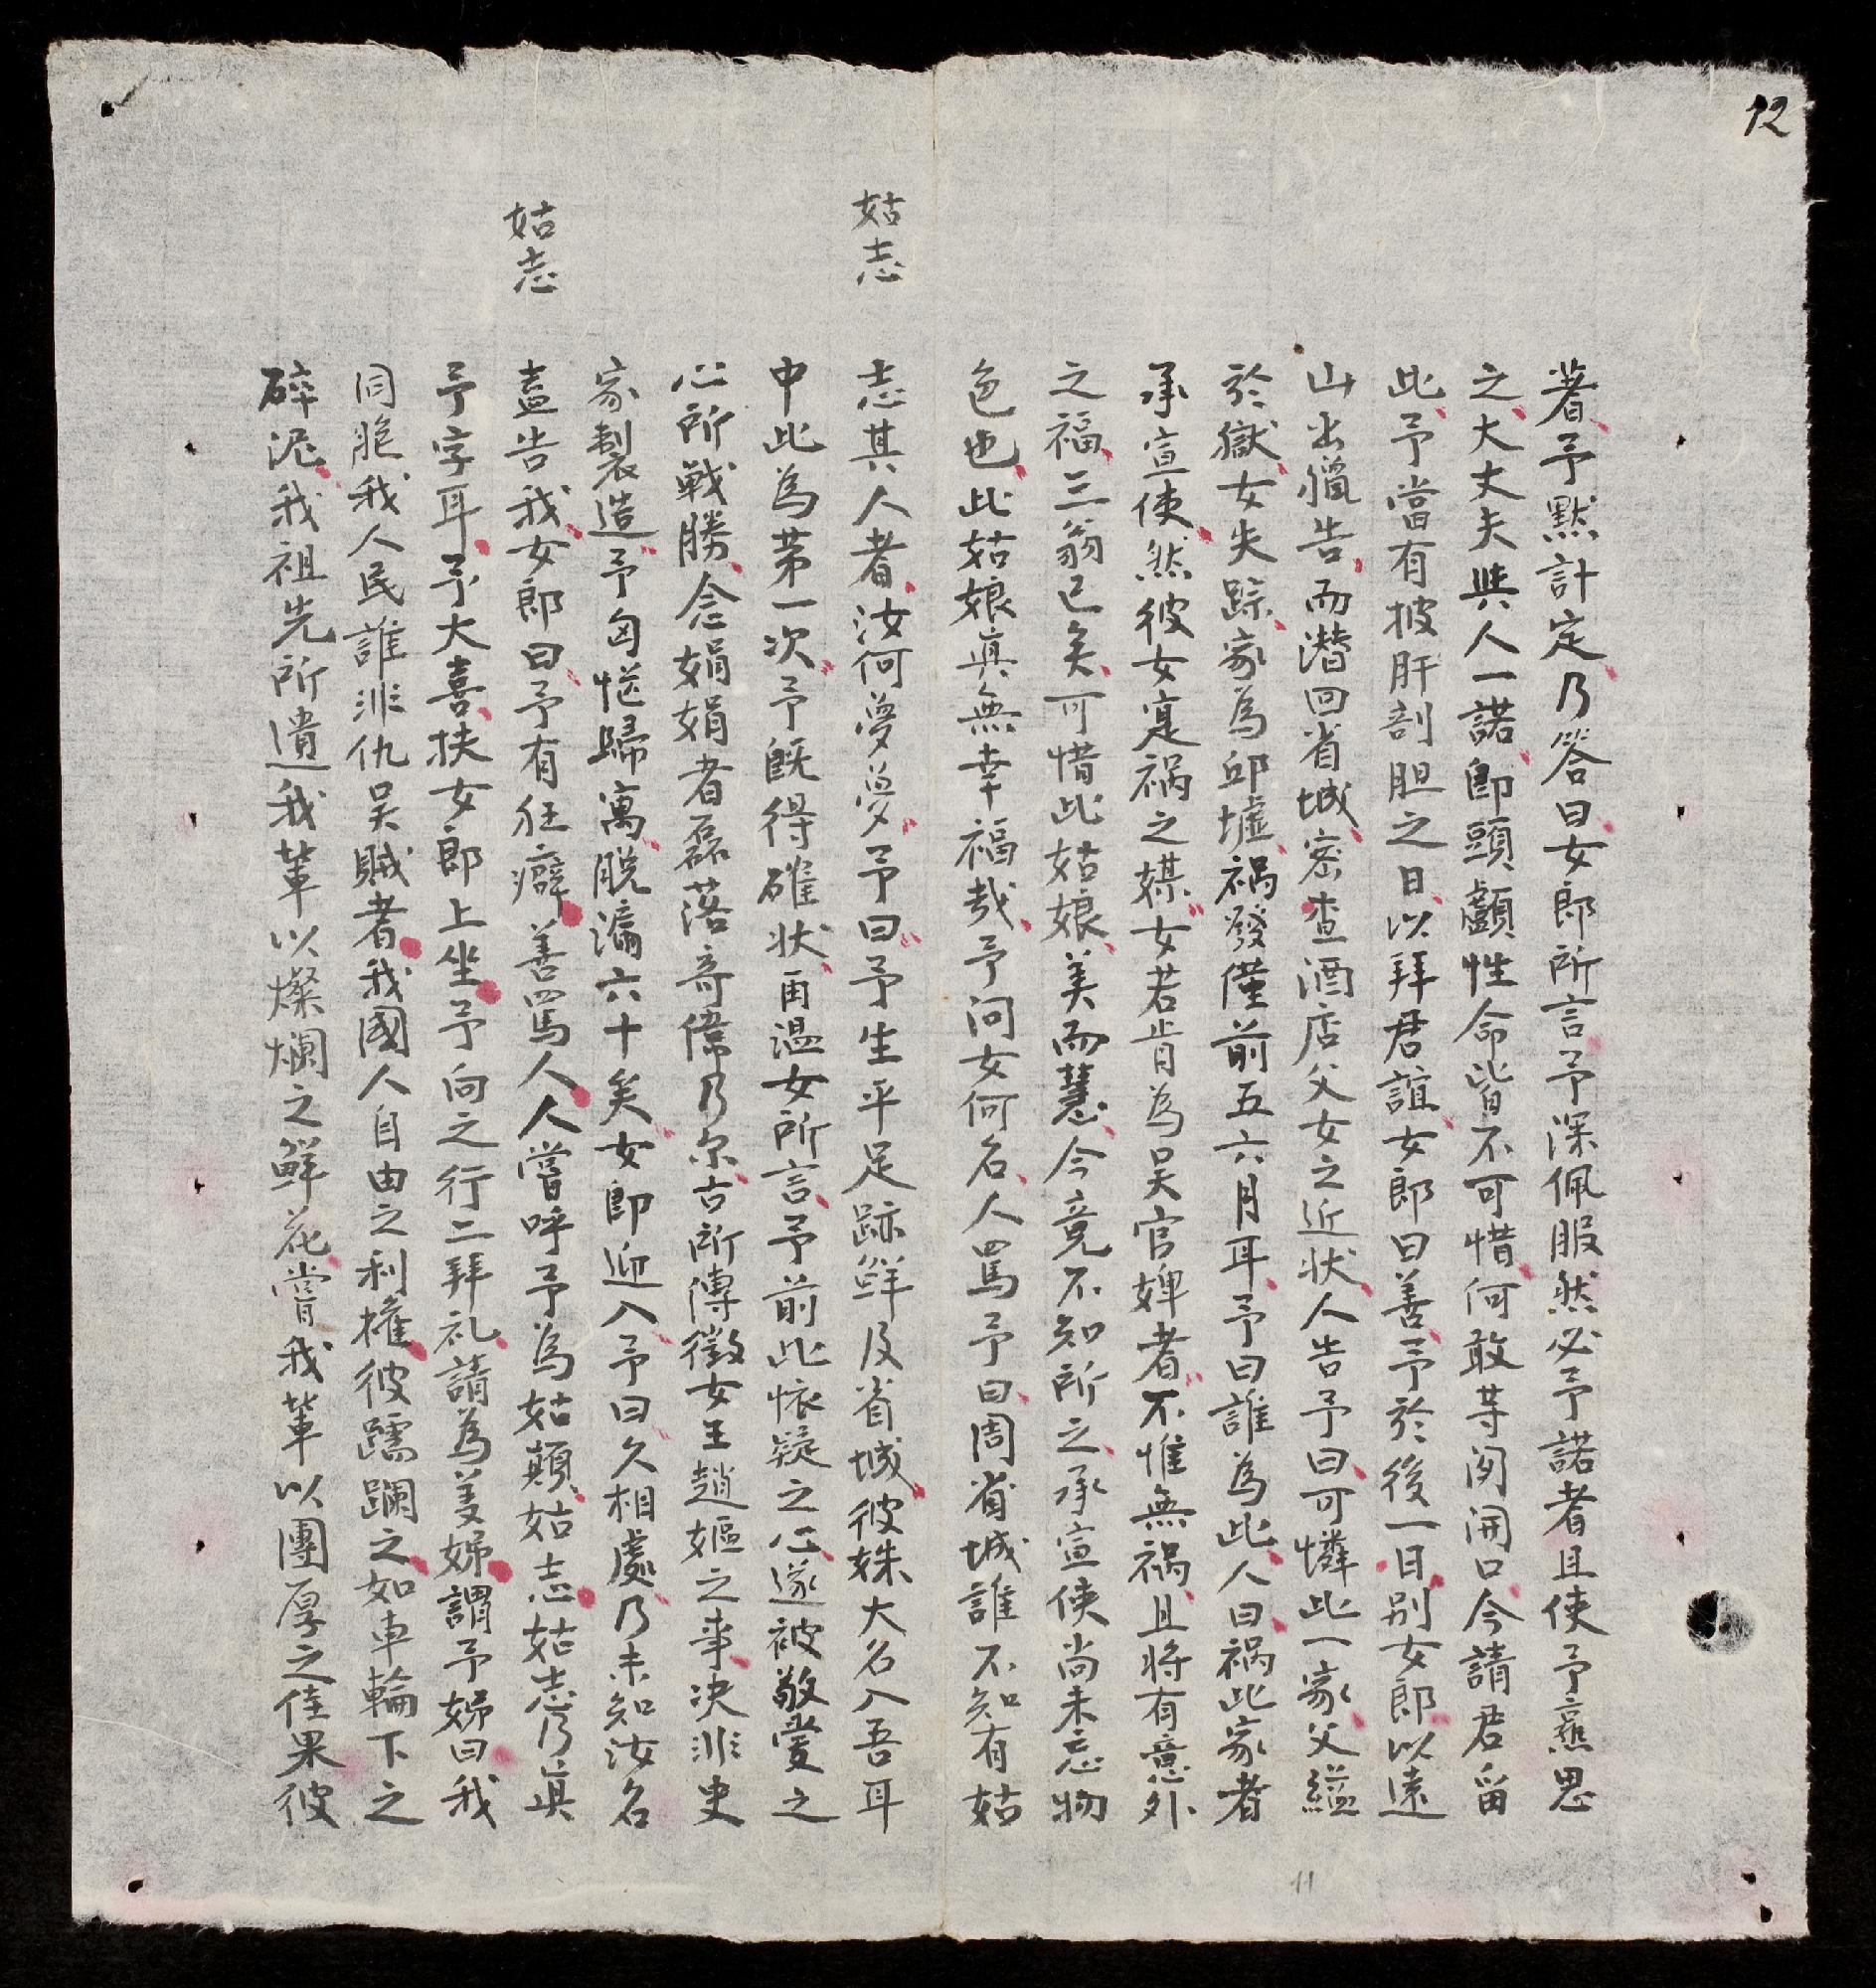 12
著予黙計定乃答曰女郎所言予深佩服然必予諾者且使予熏思
之大丈夫與人一諾卽頭顱性命皆不可惜何敢等閑開口今請君留
此予當有披肝剖胆之日以拜君誼女郎曰善予於後一日别女郎以遠
山出獵告而潛回省城密查酒店父女之近状人告予曰可憐此一家父縊
於獄女失踪家為邱墟禍發僅前五六月耳予曰誰為此人曰禍此家者
承宣使然彼女寔禍之媒女若肯為吴官婢者不惟無禍且将有意外
之福三翁已矣可惜此姑娘美而慧今竟不知所之承宣使尚未忘物
色也此姑娘真無幸福哉予问女何名人罵予曰周省城誰不知有姑
姑志
志其人者汝何夢夢予曰予生平足跡鲜及省城彼姝大名入吾耳
中此為苐一次予既得確状再温女所言予前此懐疑之心遂被敬愛之
心所戦勝念娟娟者磊落竒偉乃尔古所傳徵女王趙嫗之事决非史
家製造予匈恾歸寓脱漏六十矣女郎迎入予曰久相處乃未知汝名
姑志
盍告我女郎曰予有狂癖善罵人人嘗呼予為姑顛姑志姑志乃真
予字耳予大喜扶女郎上坐予向之行二拜礼請為義姊謂予姊曰我
同胞我人民誰非仇吴賊者我國人自由之利權彼蹂躙之如車輪下之
碎泥我祖先所遺我軰以燦爛之鲜花嘗我軰以團厚之佳果彼
11